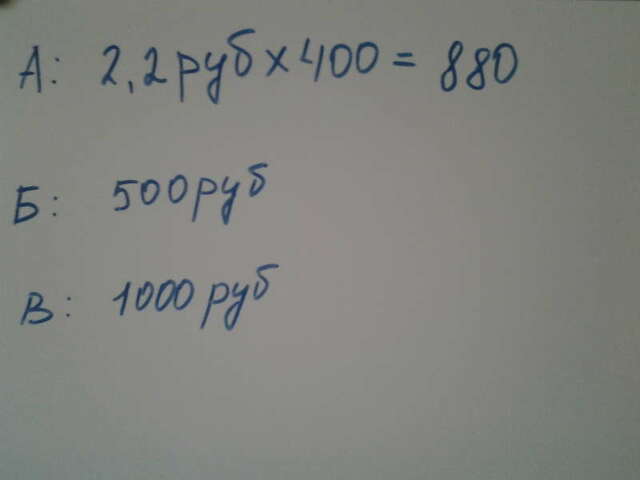 А: 2,2 руб × 400 = 880
Б: 500 руб
В: 1000 руб